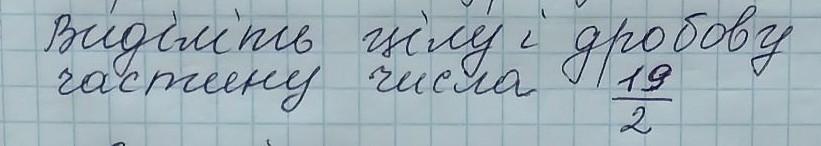 Виділіть цілу і дробову
частину числа 19/2